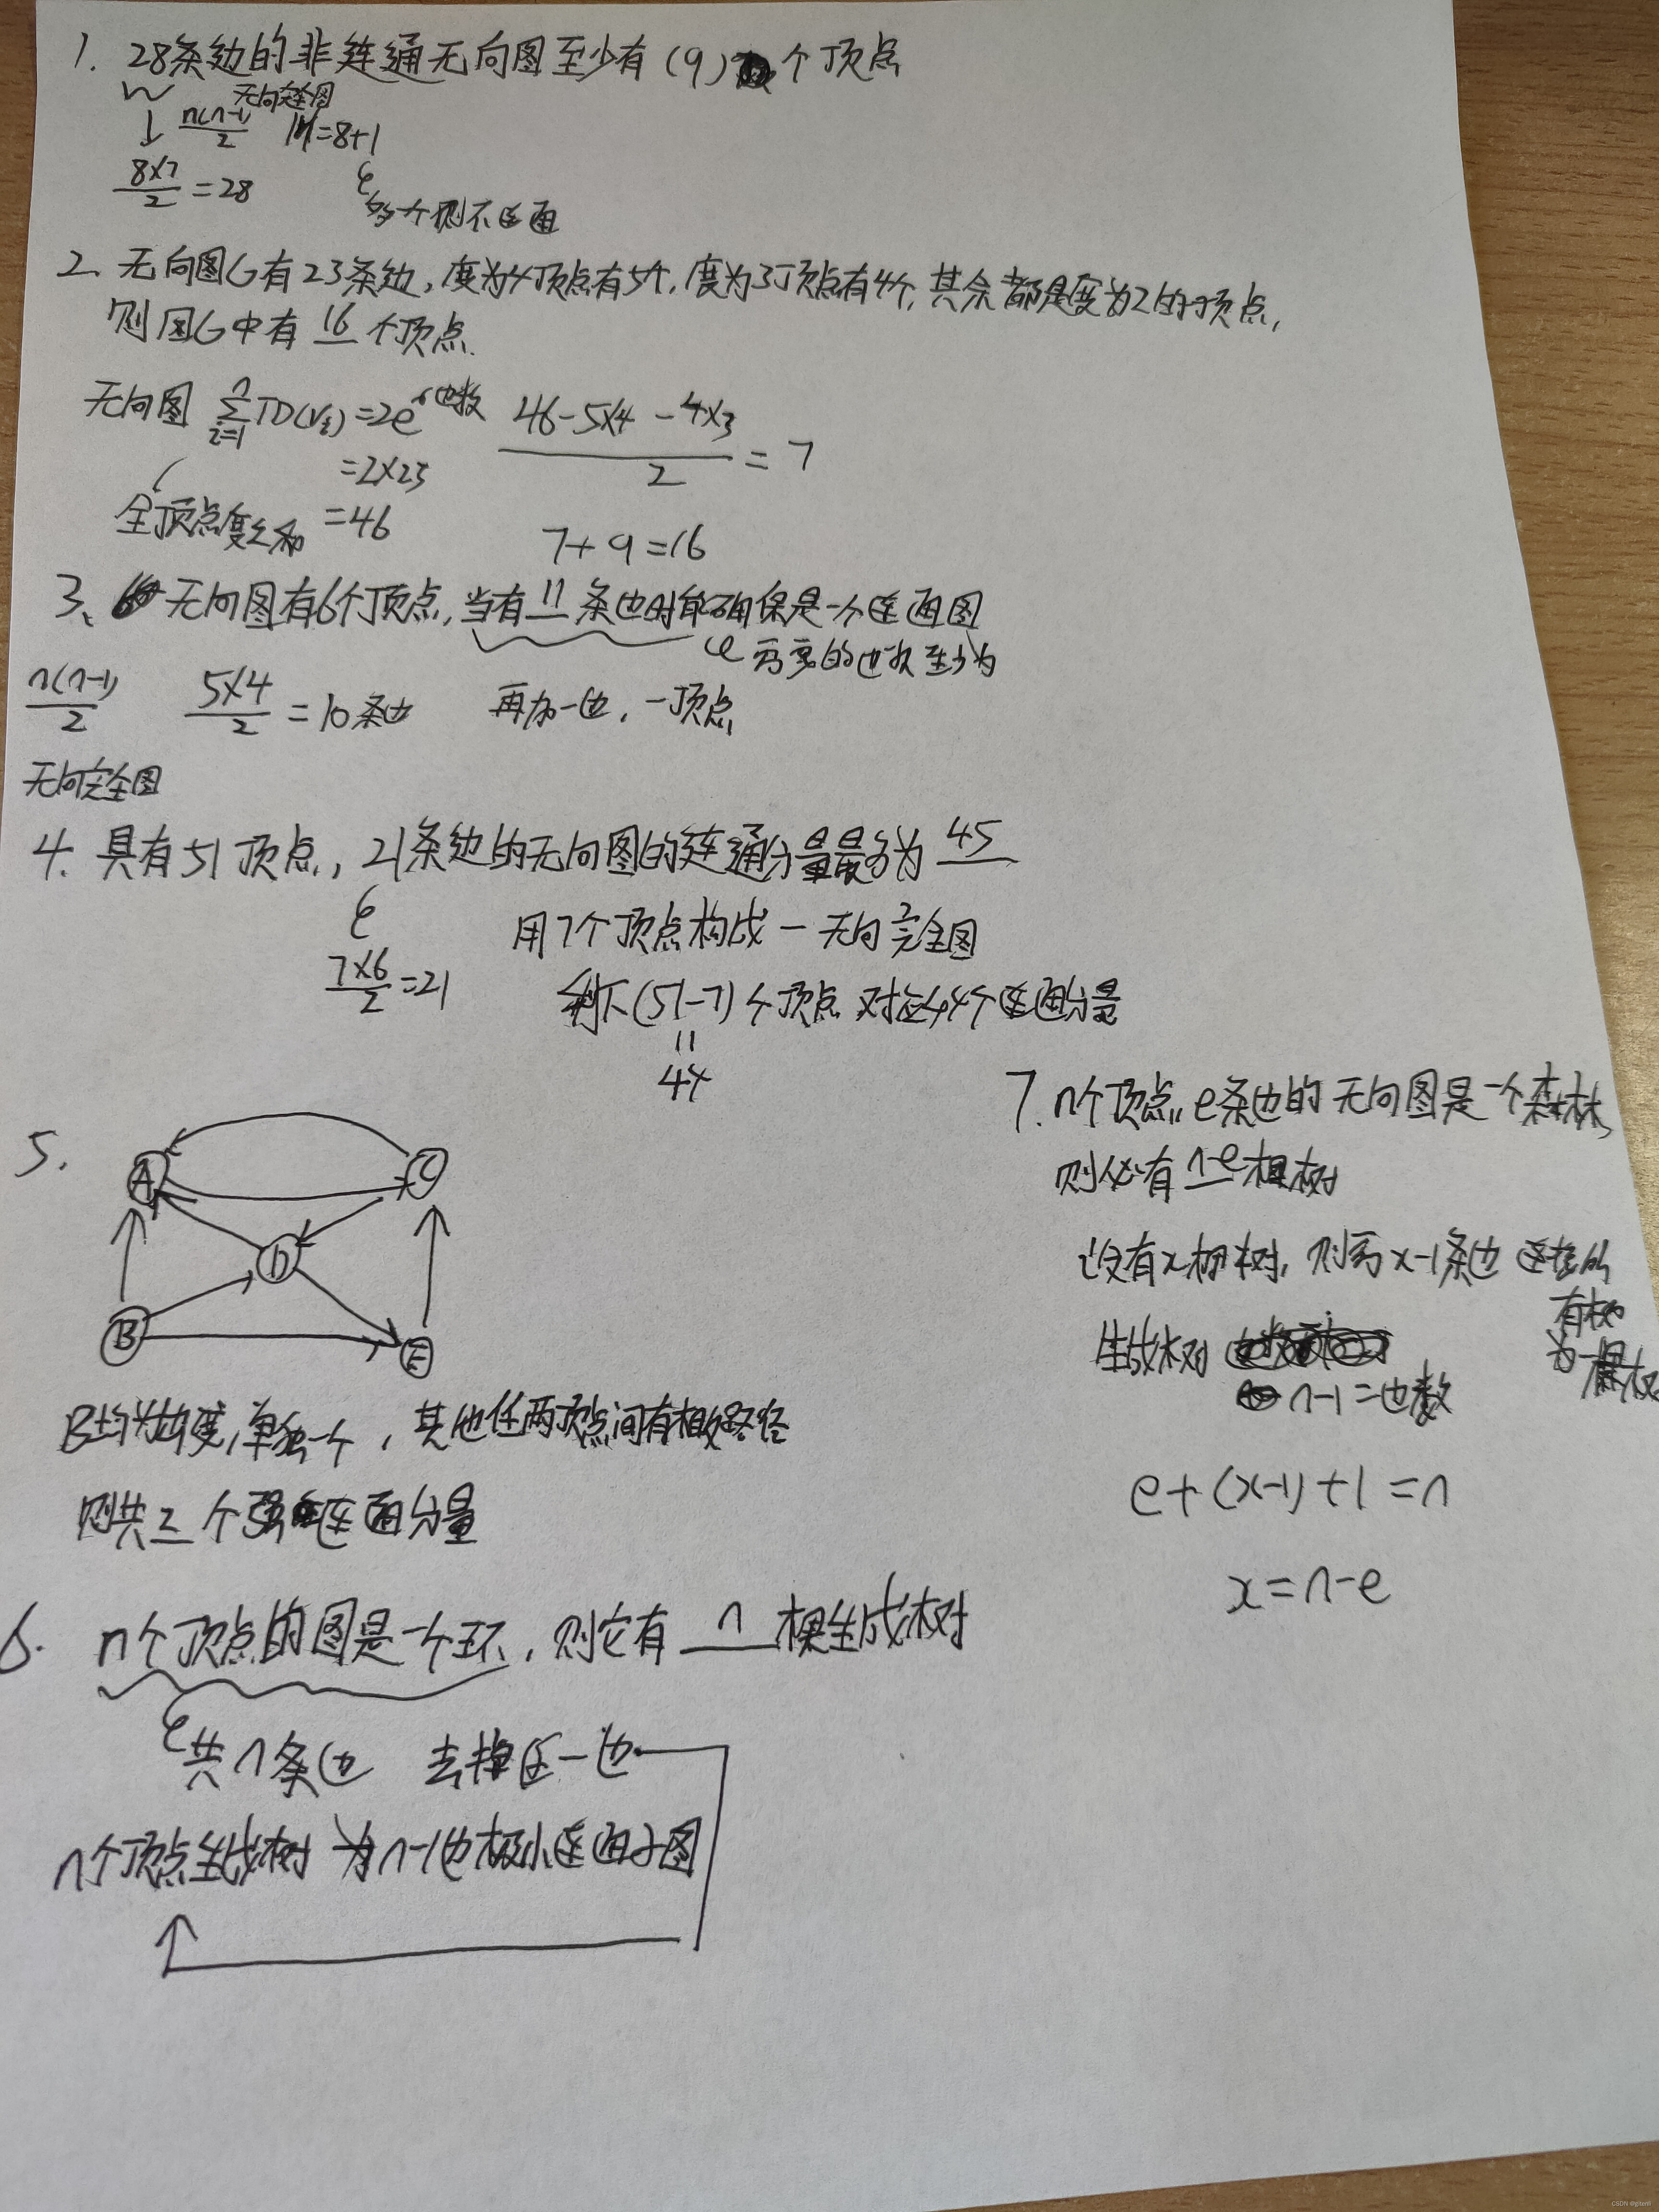 1. 28条边的非连通无向图至少有(9)个顶点
无向完全图
n(n-1)/2 n=8+1
8×7/2=28
多一个则不连通
2、无向图G有23条边,度为4顶点有5个,度为3顶点有4个,其余都是度为2的顶点,
则图G中有 16 个顶点.
无向图 n∑i=1 TD(vi)=2e 边数
=2×23
=46
全顶点度之和
46-5×4-4×3/2=7
7+9=16
3、无向图有6个顶点,当有 11 条边时能确保是一个连通图
需要的边数至少为
n(n-1)/2 5×4/2=10条边 再加一边,一顶点
无向完全图
4. 具有51顶点,21条边的无向图的连通分量最多为 45
7×6/2=21
用7个顶点构成一无向完全图
剩下(51-7)个顶点 对应44个连通分量
=
44
5.
A
C
D
B
E
B均为出度,单独一个,其他任两顶点间有相互路径
则共二个强连通分量
6. n个顶点的图是一个环,则它有 n 棵生成树
共n条边 去掉任一边
n个顶点生成树 为n-1边极小连通子图
7. n个顶点,e条边的无向图是一个森林,
则必有 n-e 棵树
设有x棵树,则需x-1条边 连接所
有树
为一棵树
生成树
n-1=边数
e+(x-1)+1=n
x=n-e